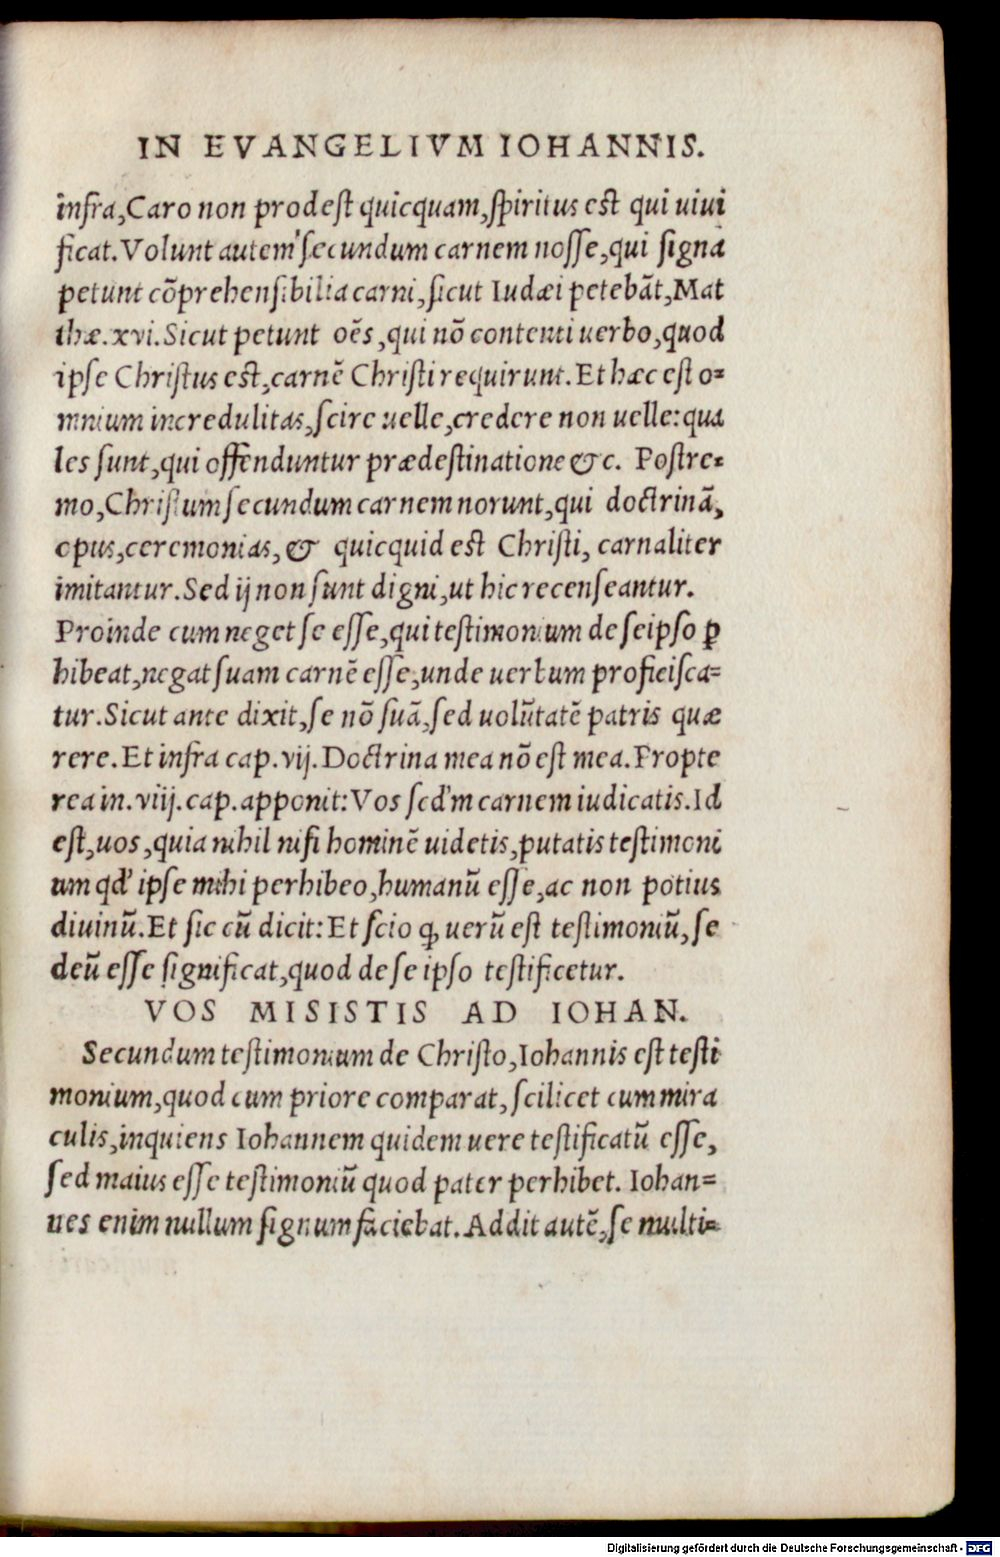 IN EVANGELIVM IOHANNIS.
infra, Caro non prodeſt quicquam, ſpiritus eſt qui uiui
ficat. Volunt autem ſecundum carnem noſſe, qui ſigna
petunt cõprehenſibilia carni, ſicut Iudæi petebãt, Mat
thæ. xvi. Sicut petunt oẽs, qui nõ contenti uerbo, quod
ipſe Chriſtus eſt, carnẽ Chriſti requirunt. Et hæc eſt o=
mnium incredulitas, ſcire uelle, credere non uelle: qua
les ſunt, qui offenduntur prædeſtinatione &c. Poſtre=
mo, Chriſtum ſecundum carnem norunt, qui doctrinã,
opus, ceremonias, & quicquid eſt Chriſti, carnaliter
imitantur. Sed ij non ſunt digni, ut hic recenſeantur.
Proinde cum neget ſe eſſe, qui teſtimonium de ſeipſo ꝑ
hibeat, negat ſuam carnẽ eſſe, unde uerbum proficiſca=
tur. Sicut ante dixit, ſe nõ ſuã, ſed uolũtatẽ patris quæ
rere. Et infra cap. vij. Doctrina mea nõ eſt mea. Propte
rea in. viij. cap. apponit: Vos ſed'm carnem iudicatis. Id
eſt, uos, quia nihil niſi hominẽ uidetis, putatis teſtimoni
um qd' ipſe mihi perhibeo, humanũ eſſe, ac non potius
diuinũ. Et ſic cũ dicit: Et ſcio ꝙ uerũ eſt teſtimoniũ, ſe
deũ eſſe ſignificat, quod de ſe ipſo teſtificetur.
VOS MISISTIS AD IOHAN.
Secundum teſtimonium de Chriſto, Iohannis eſt teſti
monium, quod cum priore comparat, ſcilicet cum mira
culis, inquiens Iohannem quidem uere teſtificatũ eſſe,
ſed maius eſſe teſtimoniũ quod pater perhibet. Iohan=
nes enim nullum ſignum faciebat. Addit autẽ, ſe multi=
Digitalisierung gefördert durch die Deutsche Forschungsgemeinschaft - DFG